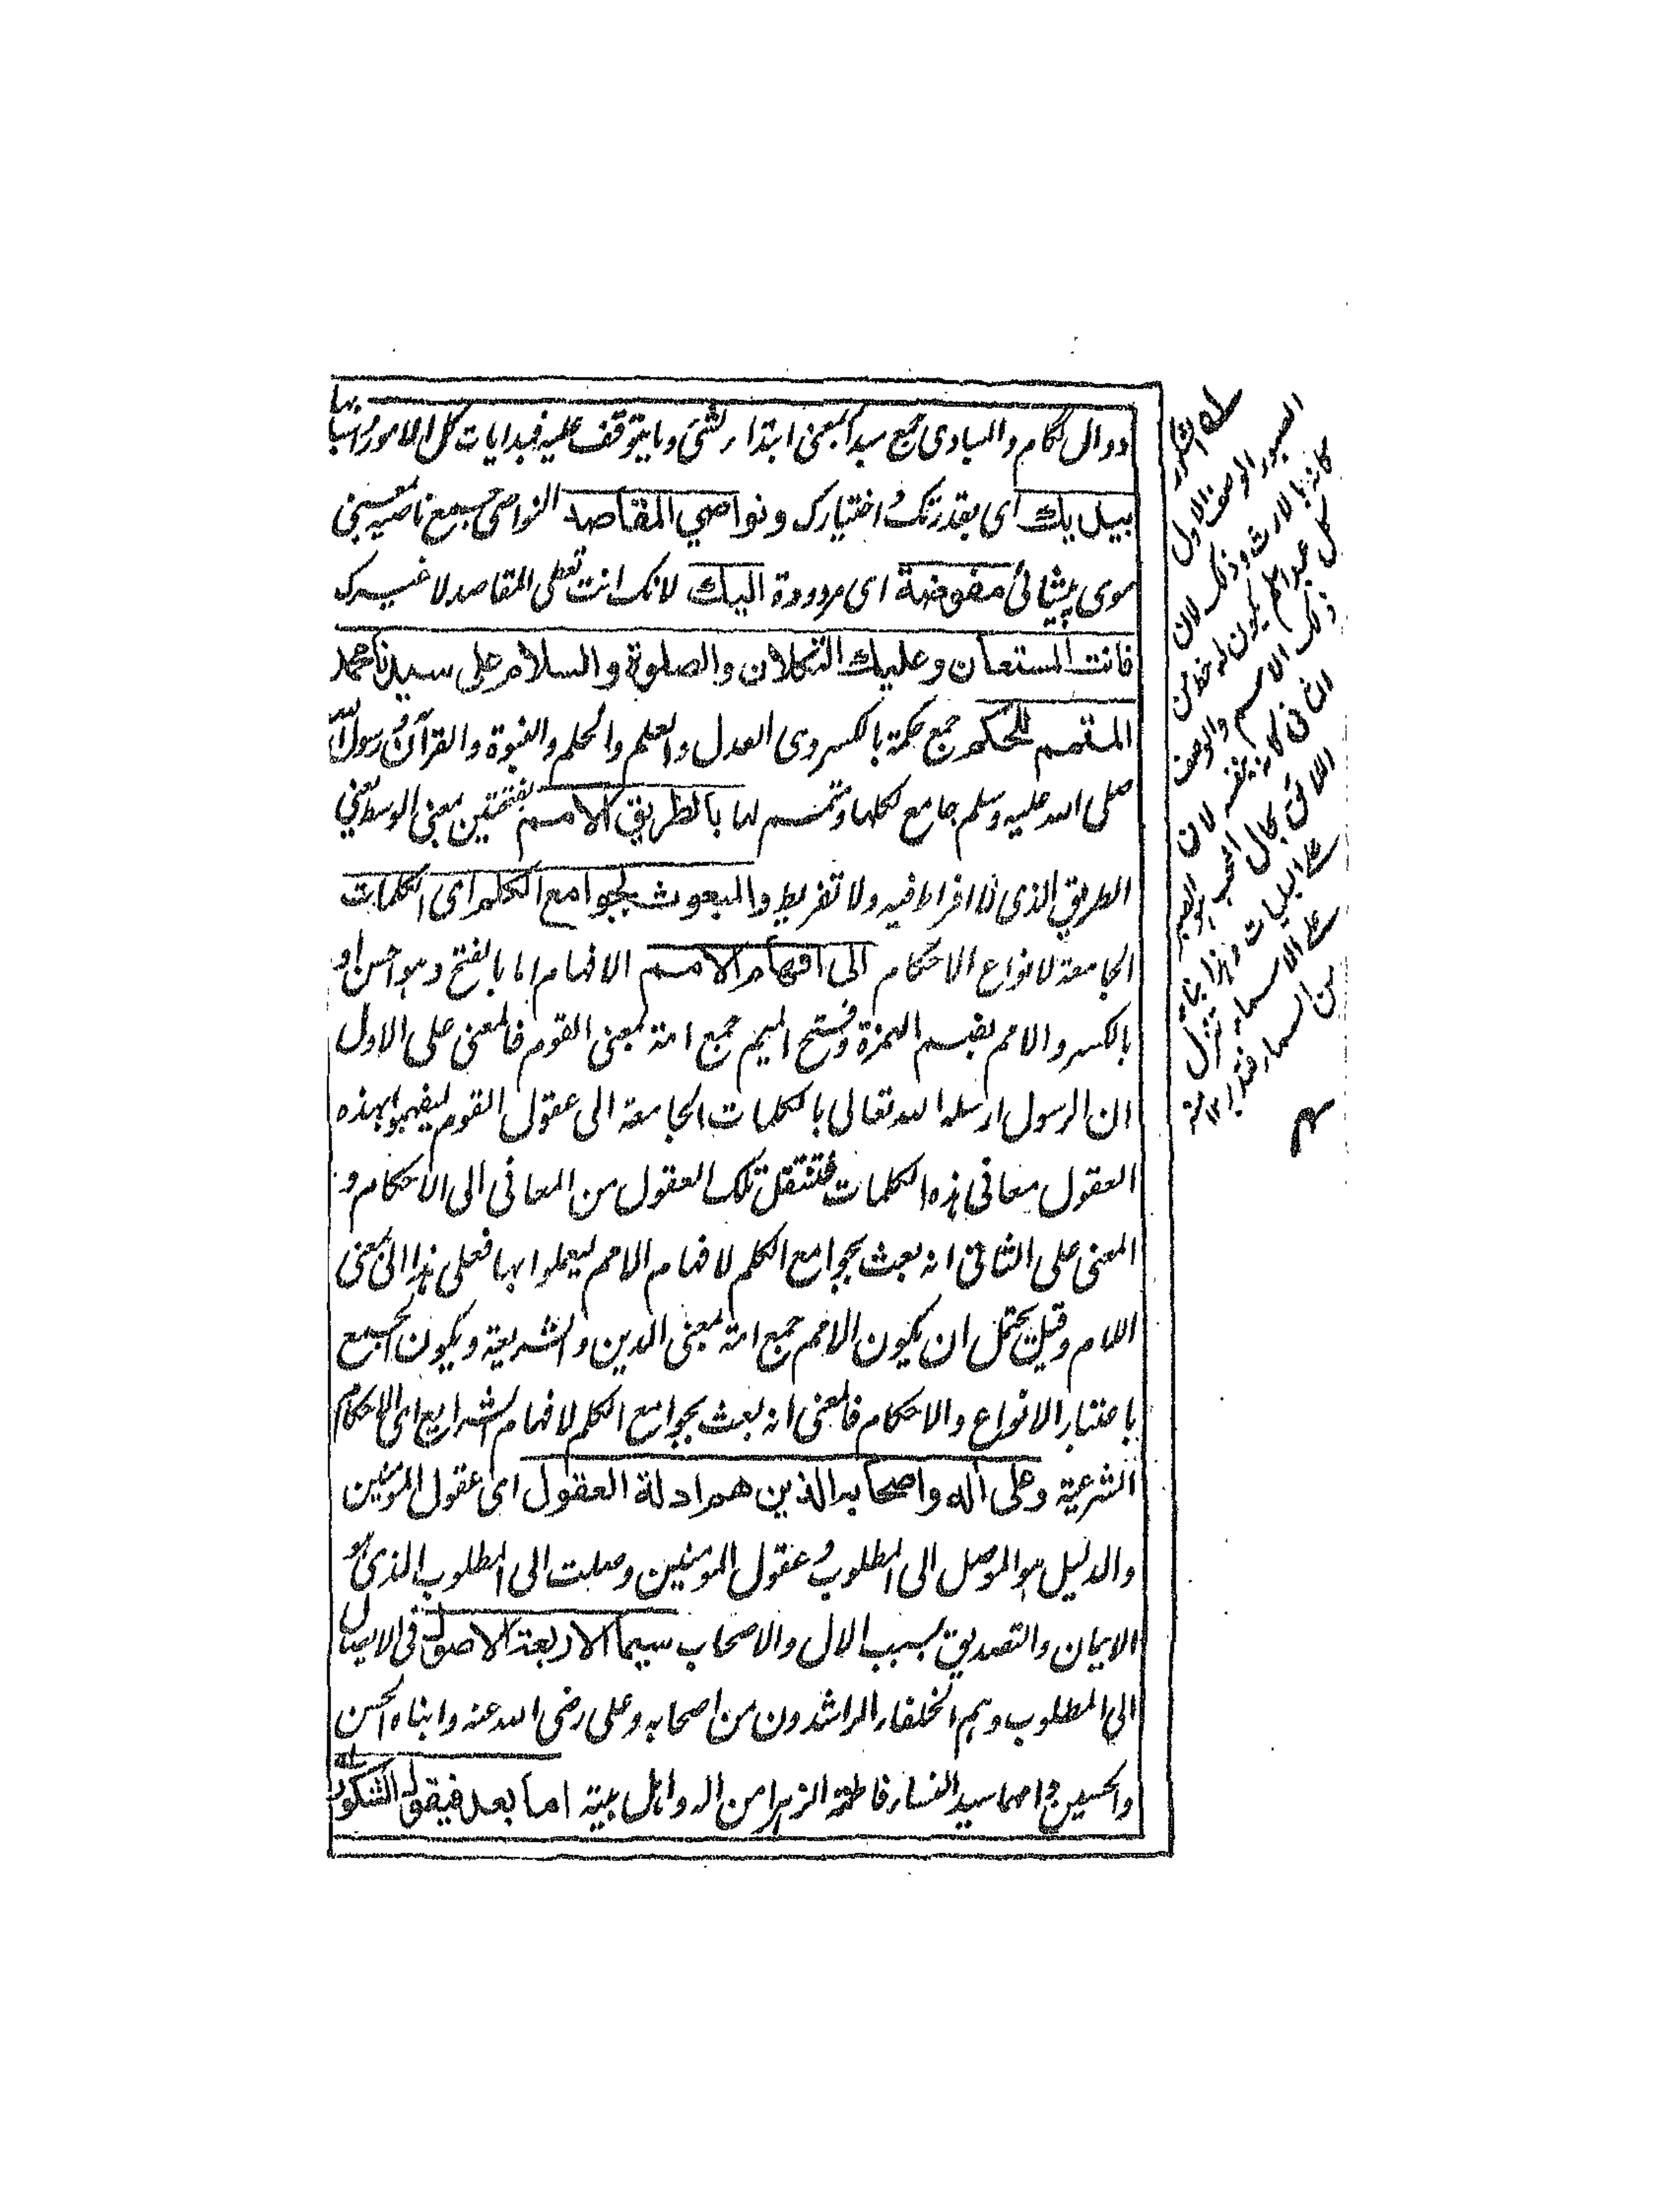 دوال كلام والمبادى جمع مبدأ بمعنى ابتداء لشئ وما يتوقف عليه فبدايات كل الامور وانتهائها
بيديك اى بقدرتك واختيارك ونواصي المقاصد النواصى جمع ناصية بمعنى
موى پيشانى مفوضة اى مردودة اليك لانك انت تعطى المقاصد لا غيرك
فانت المستعان وعليك التكلان والصلوة والسلام على سيدنا محمد
المتمم للحكم جمع حكمة بالكسر وى العدل والعلم والحلم والنبوة والقرآن ورسول الله
صلى الله عليه وسلم جامع لكلها ومتمم لها بالطريق الامم بفتحتين بمعنى الوسط يعنى
الطريق الذى لا افراط فيه ولا تفريط والمبعوث بجوامع الكلم اى الكلمات
الجامعة لانواع الاحكام الى افهام الامم الافهام اما بالفتح وهو احسن او
بالكسر والامم بضم الهمزة وفتح الميم جمع امة بمعنى القوم فالمعنى على الاول
ان الرسول ارسله الله تعالى بالكلمات الجامعة الى عقول القوم ليفهموا بهذه
العقول معانى هذه الكلمات فتنتقل تلك العقول من المعانى الى الاحكام و
المعنى على الثانى انه بعث بجوامع الكلم لافهام الامم ليعملوا بها فعلى هذا الى بمعنى
اللام وقيل يحتمل ان يكون الامم جمع امة بمعنى الدين والشريعة ويكون الجمع
باعتبار الانواع والاحكام فالمعنى انه بعث بجوامع الكلم لافهام الشرايع اى الاحكام
الشرعية وعلى اله واصحابه الذين هم ادلة العقول اى عقول المومنين
والدليل هو الموصل الى المطلوب وعقول المومنين وصلت الى المطلوب الذى هو
الايمان والتصديق بسبب الال والاصحاب سيما الاربعة الاصول فى الايصال
الى المطلوب وهم الخلفاء الراشدون من اصحابه وعلى رضى الله عنه وابناه الحسن
والحسين وامهما سيد النساء فاطمة الزهرا من اله واهل بيته اما بعد فيقول الشكور
له الشكور
الصبور الوصف الاول
كانه بالارث وذلك لان
كل عبد اسلم يكون له حظ من
ذلك الاسم والوصف
الثانى كانه بنفسه لان
اللائق بحال المحب الصبر
على البليات وهذا بناء
على الاسماء تنزل
من السماء ١٢ منه